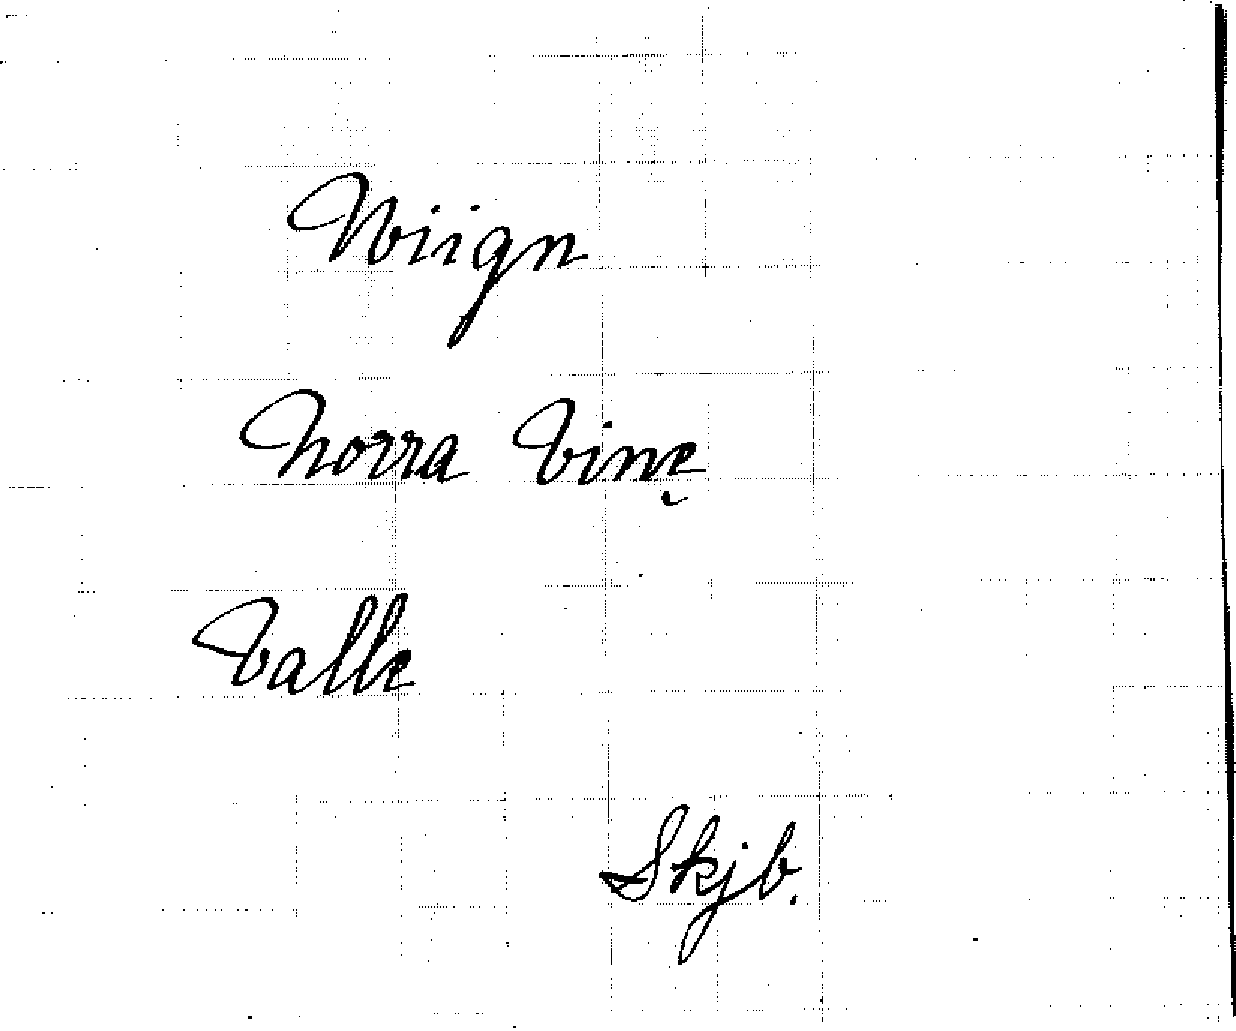 Wiign
Norra Vinę
Valle
Skjb.